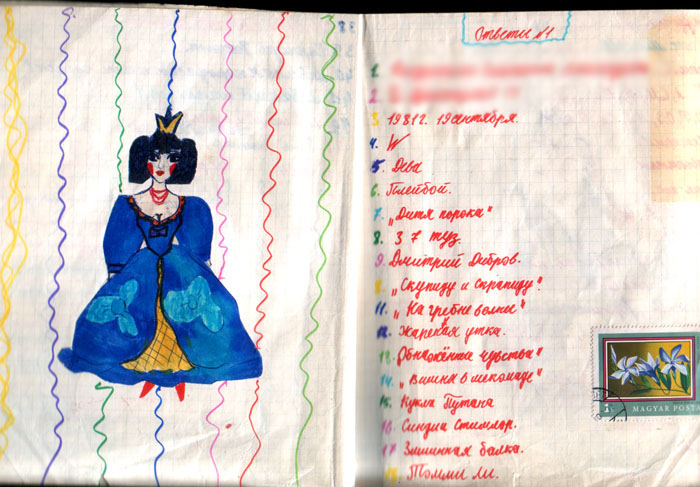 Ответы №1
1.
2.
3. 1981г. 19 сентября.
4. W
5. Дева
6. Плейбой.
7. „Дитя порока"
8. 3 7 туз.
9. Дмитрий Дибров.
„Скупиду и Скрапиду".
11. „На гребне волны"
12. Жареная утка.
13. Обнажённые чувства"
14. „Вишня в шоколаде"
15. Кукла Путана
16. Синдиа
17. балка.
18. Томми Ли.
MAGYAR POSTA